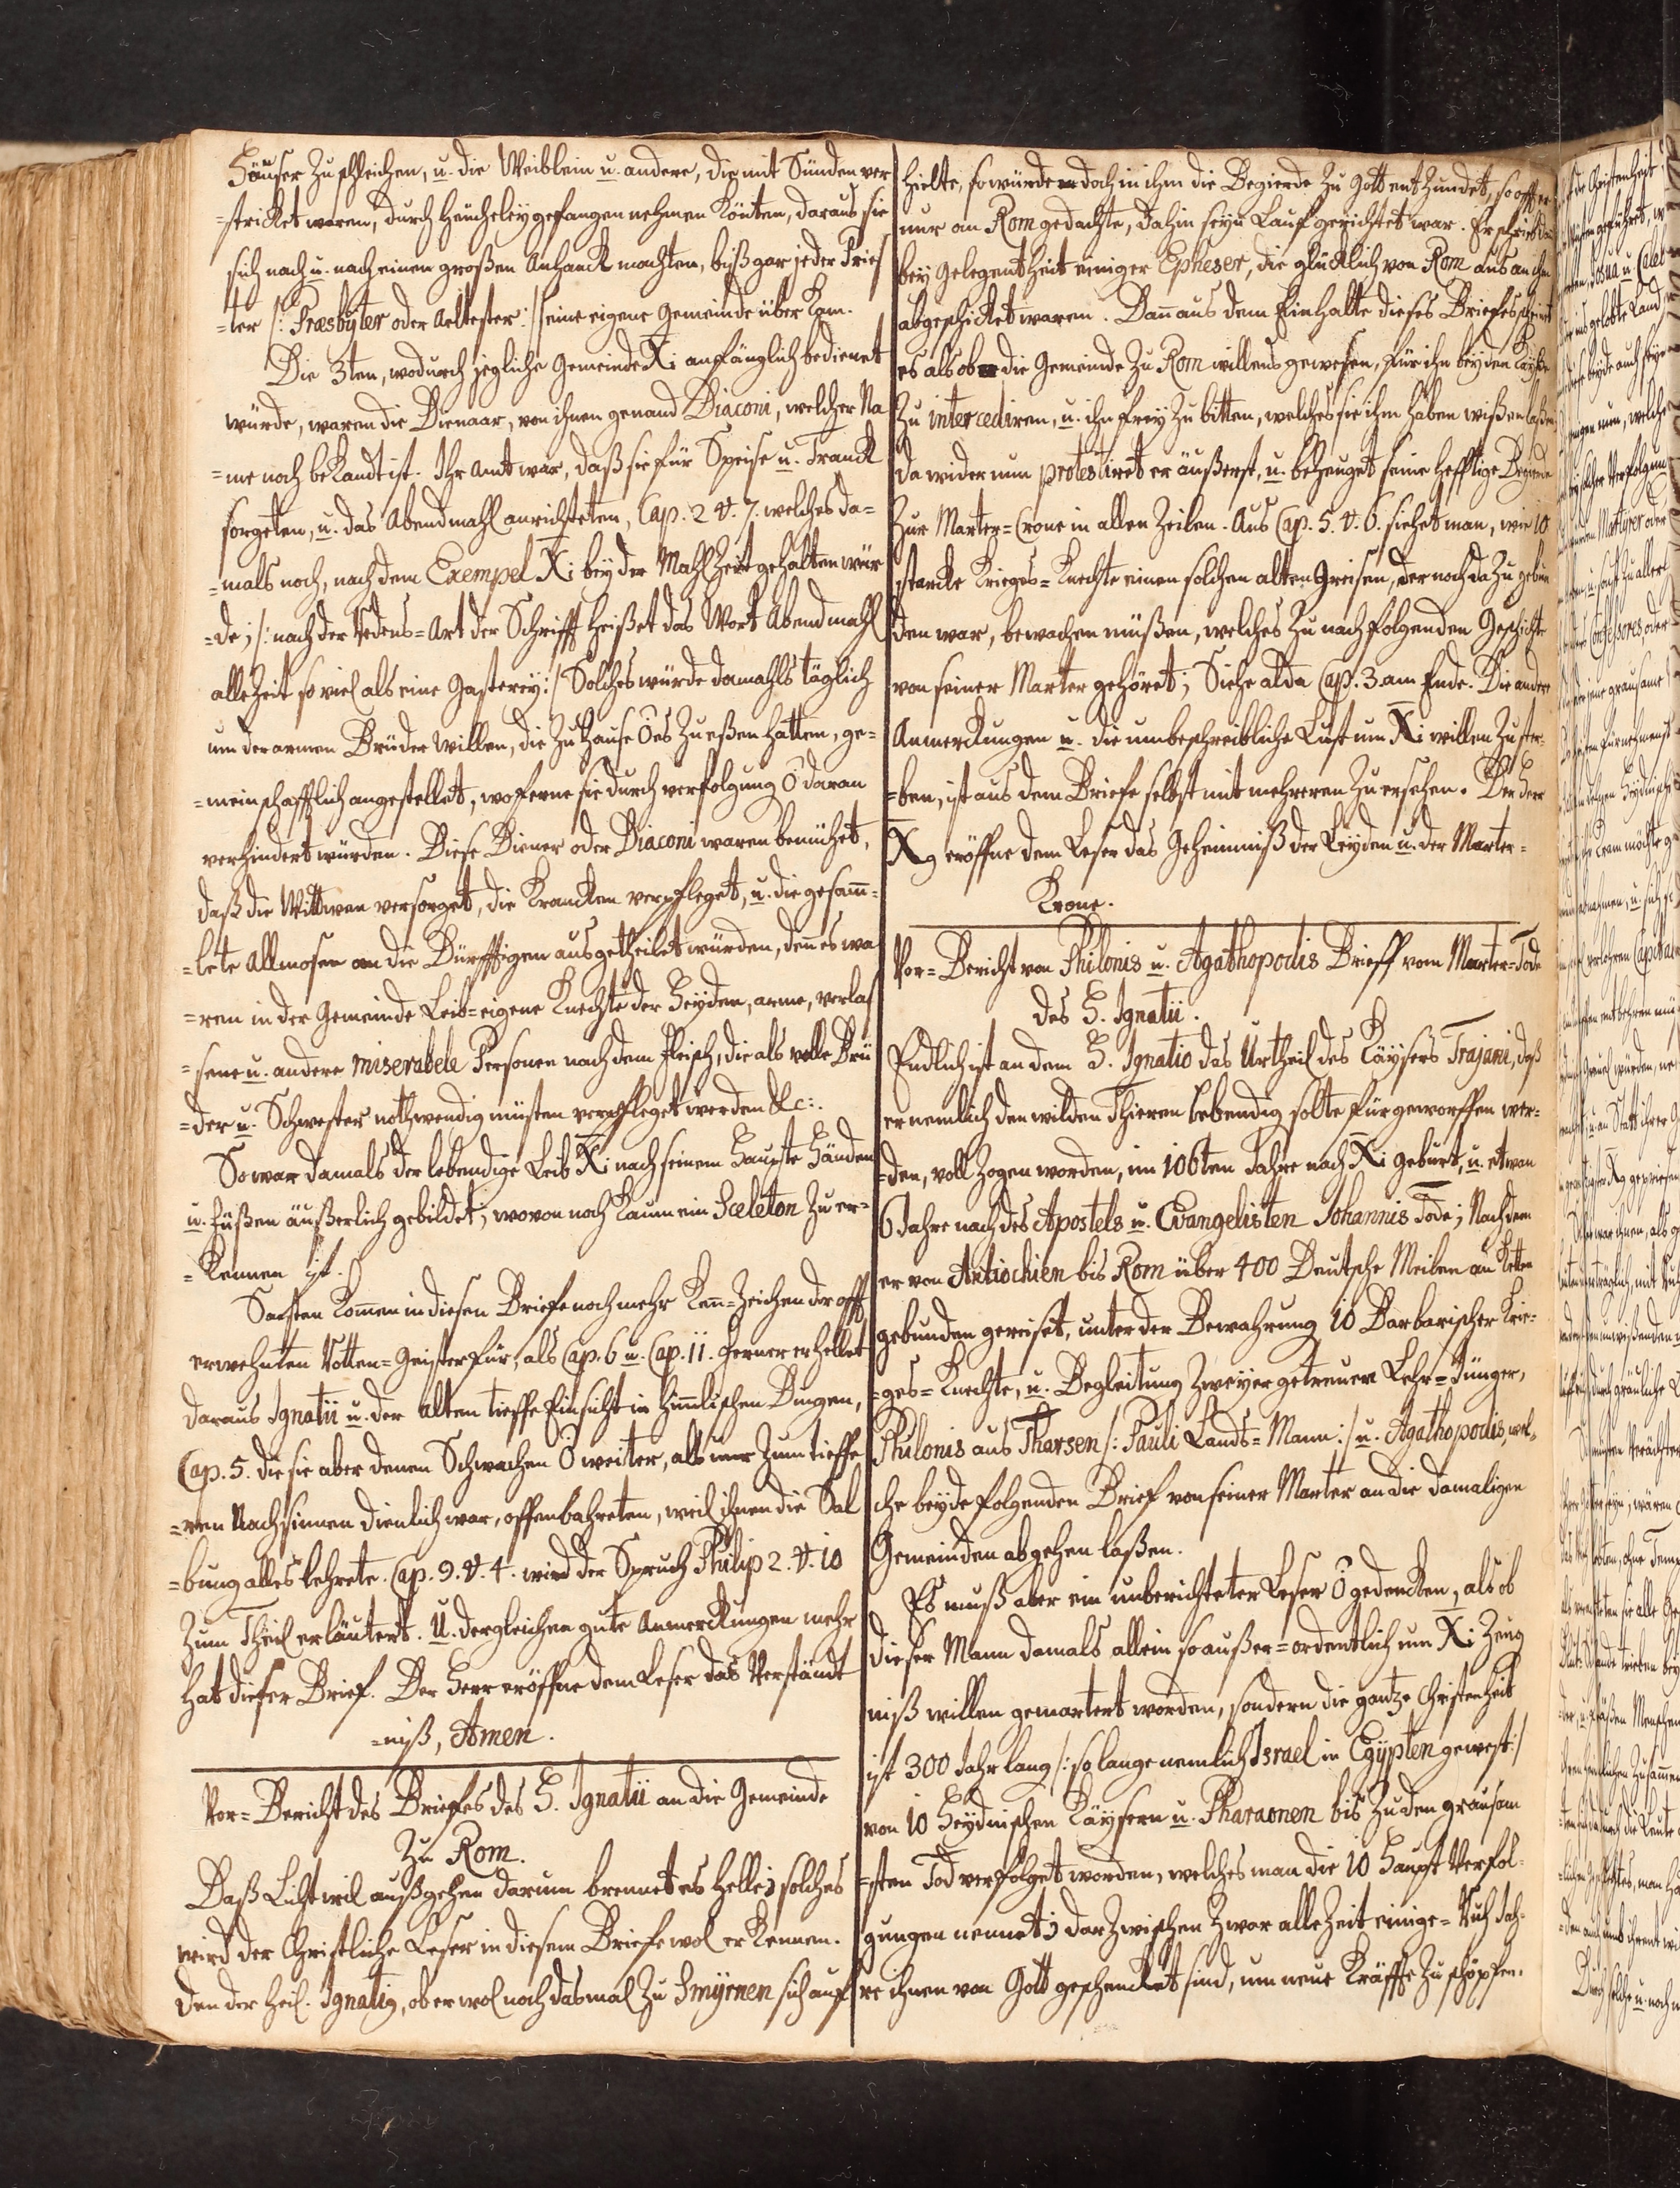 Häuser zu schleichen, u. die Weiblein u. andere, die mit Sünden ver
=stricket waren, durch Heucheley gefangen nehmen könten, daraus sie
sich nach u. nach einen großen Anhanck machten, biß gar jeder Pries
=ter /: Præsbyter oder Aeltester :/ seine eigene Gemeinde über kam.
Die 3ten, wodurch jegliche Gemeinde Xi anfänglich bedienet
würde, waren die Dienaar, von ihnen genand Diaconi, welcher Na
=me noch bekandt ist. Ihr Amt war, daß sie für Speise u. Tranck
sorgeten, u. das Abendmahl anrichteten, Cap. 2 v. 7. welches da=
=mals noch, nach dem Exempel Xi bey der Mahlzeit gehalten wür
=de; /: nach der Redens=Art der Schrifft heißet das Wort Abendmahl
allezeit so viel als eine Gasterey :/ Solches würde damahls täglich
um der armen Brüder willen, die zu Hause Öes zu eßen hatten, ge=
=meinschafftlich angestellet, wo ferne sie durch verfolgung Ö daran
verhindert würden. Diese Diener oder Diaconi waren bemühet,
daß die Wittwen versorget, die Krancken verpfleget, u. die gesam̅=
=lete Allmosen an die Dürfftigen ausgetheilet würden, den̅ es wa
=ren in der Gemeinde Leib=eigene Knechte der Heyden, arme, verlas
=sene u. andere miserabele Personen nach dem Fleisch, die als volle Brü
=der u. Schwester nothwendig müsten verpfleget werden &c:.
So war damals der lebendige Leib Xi nach seinem Haupte Händen
u. Füßen äußerlich gebildet, wovon noch kaum ein Sceleton zu er=
=kennen ist.
Sonsten kom̅en in diesen Briefe noch mehr Ken̅=Zeichen der offt
erwehnten Rotten=Geister für, als Cap. 6 u. Cap. 11. Ferner erhellet
daraus Ignatii u. der Alten tieffe Einsicht in Him̅lischen Dingen,
Cap. 5. die sie aber denen Schwachen Ö weiter, als nur zum tieffe
=ren Nachsinnen dienlich war, offenbahreten, weil ihnen die Sal
=bung alles lehrete. Cap. 9. v. 4. wird der Spruch Philip 2. v. 10
zum Theil erläutert. U. dergleichen gute Anmerckungen mehr
hat dieser Brief. Der Herr eröffne dem Leser das Verständt
=niß, Amen.
Vor=Bericht des Briefes des H. Ignatii an die Gemeinde
zu Rom.
Daß Licht wil außgehen darum brennet es helle; solches
wird der Christliche Leser in diesem Briefe wol erkennen.
Den der Heil. Ignatig, ob er wol noch dasmal zu Smyrnen sich auf
hielte, so würde doch in ihm die Begierde zu Gott entzündet, so offt er
nur an Rom gedachte, dahin seyn Lauf gerichtet war. Er schrieb
bey Gelegentheit einiger Epheser, die glücklich von Rom aus an ihn
abgeschicket waren. Dan̅ aus dem Einhalte dieses Briefes scheint
es als ob die Gemeinde zu Rom willens gewesen, für ihn bey dem Käyser
zu intercediren, u. ihn frey zu bitten, welches sie ihm haben wißen laßen
da wider nun protestiret er äußerst, u. bezeuget seine hefftige Begierde
zur Marter=Crone in allen Zeilen. Aus Cap. 5. v. 6. siehet man, wie 10
starcke Krieges=Knechte einen solchen alten Greisen, der noch dazu gebun
den war, bewachen müßen, welches zu nachfolgenden Geschichte
von seiner Marter gehöret; Siehe alda Cap. 3 am Ende. Die andere
Anmerckungen u. die unbeschreibliche Lust um Xi willen zu ster=
=ben, ist aus dem Briefe selbst mit mehreren zu ersehen. Der Herr
Xg eröffne dem Leser das Geheimniß der Leyden u. der Marter=
Krone.
Vor=Bericht von Philonis u. Agathopodis Brieff vom Marter=Tode
des H. Ignatii.
Endlich ist an dem H. Ignatio das Urtheil des Käysers Trajani, daß
er nemlich den wilden Thieren lebendig solte fürgeworffen wer=
=den, vollzogen worden, im 106ten Jahre nach Xi geburt, u. etwan
6 Jahre nach des Apostels u. Evangelisten Johannis Tode; Nachdem
er von Antiochien bis Rom über 400 Deutsche Meilen an Ketten
gebunden gereiset, unter der Bewahrung 10 Barbarischer Krie=
=ges=Knechte, u. Begleitung zweyer getreuen Lehr=Jünger,
Philonis aus Tharsen /: Pauli Lands=Mann :/ u. Agathopodis, wel=
che beyde folgenden Brief von seiner Marter an die damaligen
Gemeinden abgehen laßen.
Es muß aber ein unberichteter Leser Ö gedencken, als ob
dieser Mann damals allein so außer=ordentlich um Xi Zeug
niß willen gemartert worden, sondern die gantze Christenheit
ist 300 Jahr lang /: so lange nemlich Israel in Egypten gewest :/
von 10 Heydnischen Käysern u. Pharaonen bis zu den grausam
=sten Tod verfolget worden, welches man die 10 Haupt Verfol=
gungen nennet; darzwischen zwar allezeit einige=Ruh Jah=
re ihnen von Gott geschencket sind, um neue Kräffte zu schöpfen.